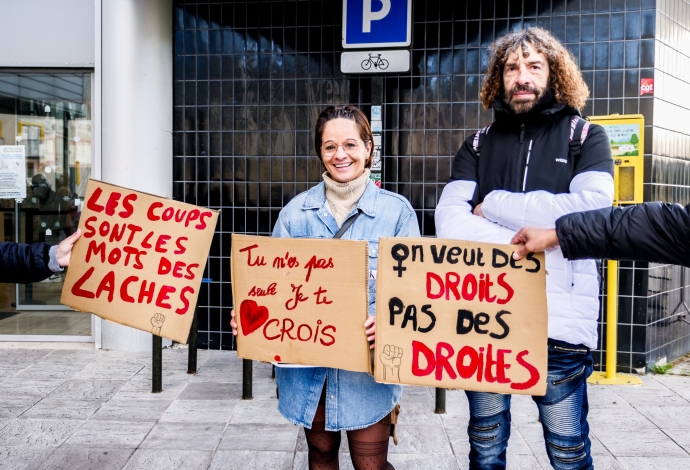 P
cgt
LES COUPS
SONT LES
MOTS DES
LACHES
Tu n'es pas
seule Je te
CROIS
ON VEUT DES
DROITS
PAS DES
DROITES